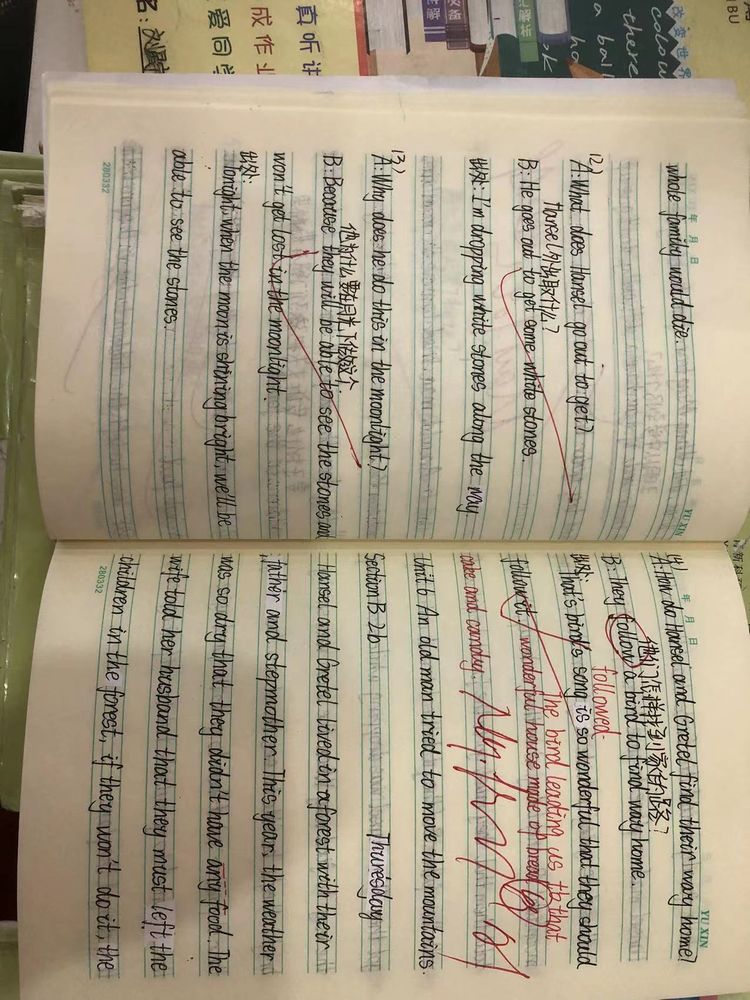 真听讲
成作业
爱同学
改变世界
colou
there
a ball
年 月 日
whole family would die.
12)
A: What does Hansel go out to get?
Hansel外出取什么?
B: He goes out to get some white stones.
出处: I'm dropping white stones along the way
13)
A: Why does he do this in the moonlight?
他为什么要在月光下做这个
B: Because they will be able to see the stones and
won't get lost in the moonlight.
出处:
Tonight, when the moon is shining bright, we'll be
able to see the stones.
280332
YU XIN
年 月 日
14)
A: How do Hansel and Gretel find their way home?
他们怎样找到家的路?
B: They follow a bird to find way home.
followed
出处: That's bird's song is so wonderful that they should
follow it.
The bird leading us to that
wonderful house made of bread
cake and candy.
Unit 6 An old man tried to move the mountains.
Thuresday
Section B 2b
Hansel and Gretel lived in a forest with their
father and stepmother. This year, the weather
was so dry that they didn't have any food. The
wife told her husband that they must left the
children in the forest, if they won't do it, the
280332
YU XIN